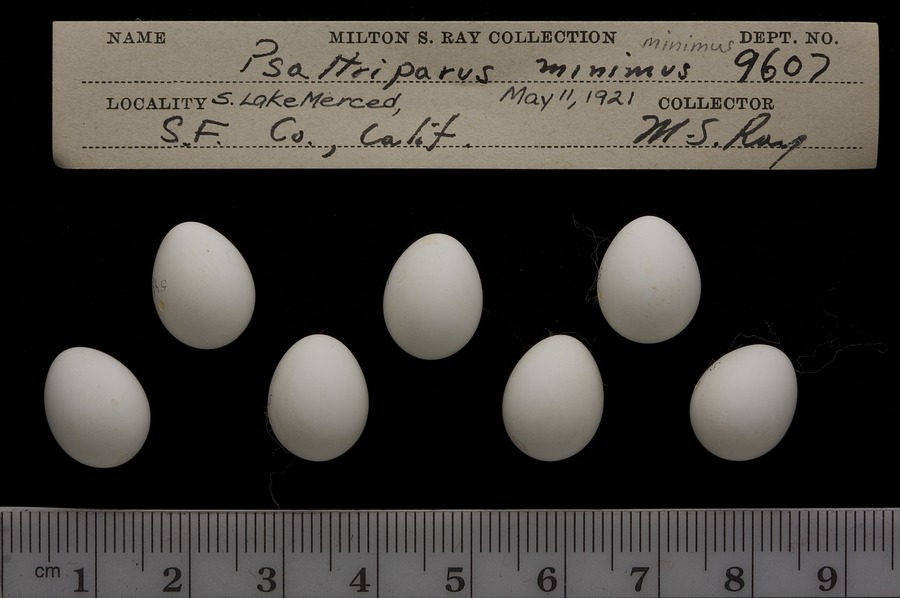 NAME MILTON S. RAY COLLECTION minimus DEPT. NO.
Psaltriparus minimus 9607
LOCALITY S. Lake Merced, May 11, 1921 COLLECTOR
S.F. Co., Calif. M.S. Ray
cm 1 2 3 4 5 6 7 8 9